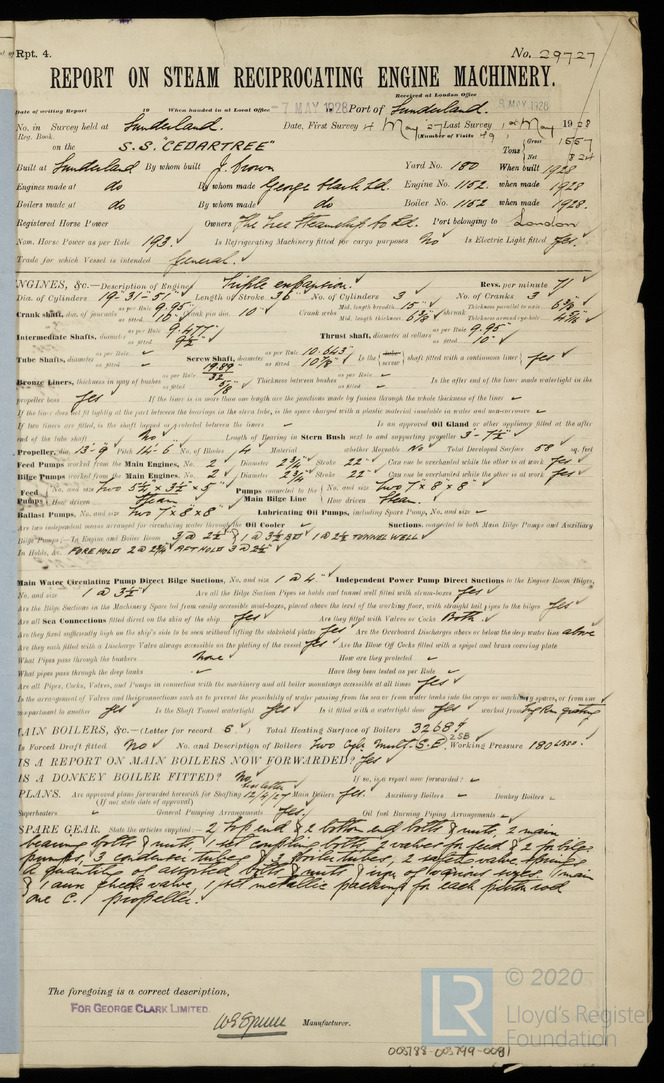 Rpt. 4.
No. 29727
REPORT ON STEAM RECIPROCATING ENGINE MACHINERY.
Received at London Office
Date of writing Report 19 When handed in at Local Office -7 MAY 1928 Port of Sunderland. 8 MAY 1928
No. in Survey held at Sunderland. Date, First Survey 4 May 27 Last Survey 1st May 1928
Reg. Book. (Number of Visits 49)
on the S.S. "CEDARTREE" Tons Gross 1557
Net 824
Built at Sunderland By whom built J. Crown Yard No. 180 When built 1928
Engines made at do By whom made George Clark Ld. Engine No. 1152. when made 1928
Boilers made at do By whom made do Boiler No. 1152 when made 1928.
Registered Horse Power Owners The Tree Steamship Co Ld. Port belonging to London
Nom. Horse Power as per Rule 193. Is Refrigerating Machinery fitted for cargo purposes No Is Electric Light fitted Yes.
Trade for which Vessel is intended General.
ENGINES, &c.—Description of Engines Triple expansion. Revs. per minute 71
Dia. of Cylinders 19"-31"-51" Length of Stroke 36" No. of Cylinders 3 No. of Cranks 3
Crank shaft, dia. of journals as per Rule 9.95" as fitted 10" Crank pin dia. 10" Crank webs Mid. length breadth 15" Mid. length thickness 6 3/8" shrunk Thickness parallel to axis 6 3/8" Thickness around eye-hole 4 5/16"
Intermediate Shafts, diameter as per Rule 9.477" as fitted 9 1/2" Thrust shaft, diameter at collars as per Rule 9.95" as fitted 10"
Tube Shafts, diameter as per Rule as fitted Screw Shaft, diameter as per Rule 10.643" as fitted 10 7/8" Is the tube screw shaft fitted with a continuous liner Yes
Bronze Liners, thickness in way of bushes as per Rule 19.89/32 as fitted 5/8" Thickness between bushes as per Rule as fitted Is the after end of the liner made watertight in the
propeller boss Yes If the liner is in more than one length are the junctions made by fusion through the whole thickness of the liner
If the liner does not fit tightly at the part between the bearings in the stern tube, is the space charged with a plastic material insoluble in water and non-corrosive
If two liners are fitted, is the shaft lapped or protected between the liners Is an approved Oil Gland or other appliance fitted at the after
end of the tube shaft No Length of Bearing in Stern Bush next to and supporting propeller 3'-7 1/2"
Propeller, dia. 13'-9" Pitch 14'-6" No. of Blades 4 Material whether Moveable No Total Developed Surface 58 sq. feet
Feed Pumps worked from the Main Engines, No. 2 Diameter 2 3/4" Stroke 22" Can one be overhauled while the other is at work Yes
Bilge Pumps worked from the Main Engines, No. 2 Diameter 2 3/4" Stroke 22" Can one be overhauled while the other is at work Yes
Feed Pumps No. and size Two 5 1/2" x 3 1/2" x 5" How driven Steam Pumps connected to the Main Bilge Line No. and size Two 7" x 8" x 8" How driven Steam.
Ballast Pumps, No. and size Two 7" x 8" x 8" Lubricating Oil Pumps, including Spare Pump, No. and size
Are two independent means arranged for circulating water through the Oil Cooler Suctions, connected to both Main Bilge Pumps and Auxiliary
Bilge Pumps:—In Engine and Boiler Room 3 @ 2 1/2" & 1 @ 3 1/2" BD 1 @ 2 1/2" TUNNEL WELL
In Holds, &c. FORE HOLD 2 @ 2 3/4" AFT HOLD 3 @ 2 1/2"
Main Water Circulating Pump Direct Bilge Suctions, No. and size 1 @ 4" Independent Power Pump Direct Suctions to the Engine Room Bilges,
No. and size 1 @ 3 1/2" Are all the Bilge Suction Pipes in holds and tunnel well fitted with strum-boxes Yes
Are the Bilge Suctions in the Machinery Space led from easily accessible mud-boxes, placed above the level of the working floor, with straight tail pipes to the bilges Yes
Are all Sea Connections fitted direct on the skin of the ship Yes Are they fitted with Valves or Cocks Both
Are they fixed sufficiently high on the ship's side to be seen without lifting the stokehold plates Yes Are the Overboard Discharges above or below the deep water line above
Are they each fitted with a Discharge Valve always accessible on the plating of the vessel Yes Are the Blow Off Cocks fitted with a spigot and brass covering plate
What Pipes pass through the bunkers None How are they protected
What pipes pass through the deep tanks Have they been tested as per Rule
Are all Pipes, Cocks, Valves, and Pumps in connection with the machinery and all boiler mountings accessible at all times Yes
Is the arrangement of Valves and their connections such as to prevent the possibility of water passing from the sea or from water tanks into the cargo or machinery spaces, or from one
compartment to another Yes Is the Shaft Tunnel watertight Yes Is it fitted with a watertight door Yes worked from Eng Rm grating
MAIN BOILERS, &c.—(Letter for record S) Total Heating Surface of Boilers 3268
Is Forced Draft fitted No No. and Description of Boilers Two Cyl. Mult. S.E. 2SB Working Pressure 180 Lbs.
IS A REPORT ON MAIN BOILERS NOW FORWARDED? Yes
IS A DONKEY BOILER FITTED? No. If so, is a report now forwarded?
PLANS. Are approved plans forwarded herewith for Shafting See letter 12/4/27 Main Boilers Yes. Auxiliary Boilers Donkey Boilers
(If not state date of approval)
Superheaters General Pumping Arrangements Yes. Oil fuel Burning Piping Arrangements
SPARE GEAR. State the articles supplied:— 2 top end & 2 bottom end bolts & nuts, 2 main
bearing bolts & nuts, 1 set coupling bolts, 2 valves for feed & 2 for bilge
pumps, 3 condenser tubes & 2 boiler tubes, 2 safety valve springs
A quantity of assorted bolts & nuts & iron of various sizes. 1 main
& 1 aux check valve, 1 set metallic packing for each piston rod
one C.I. propeller.
The foregoing is a correct description,
FOR GEORGE CLARK LIMITED.
Manufacturer.
LR © 2020
Lloyd's Register
Foundation
003788-003799-0081